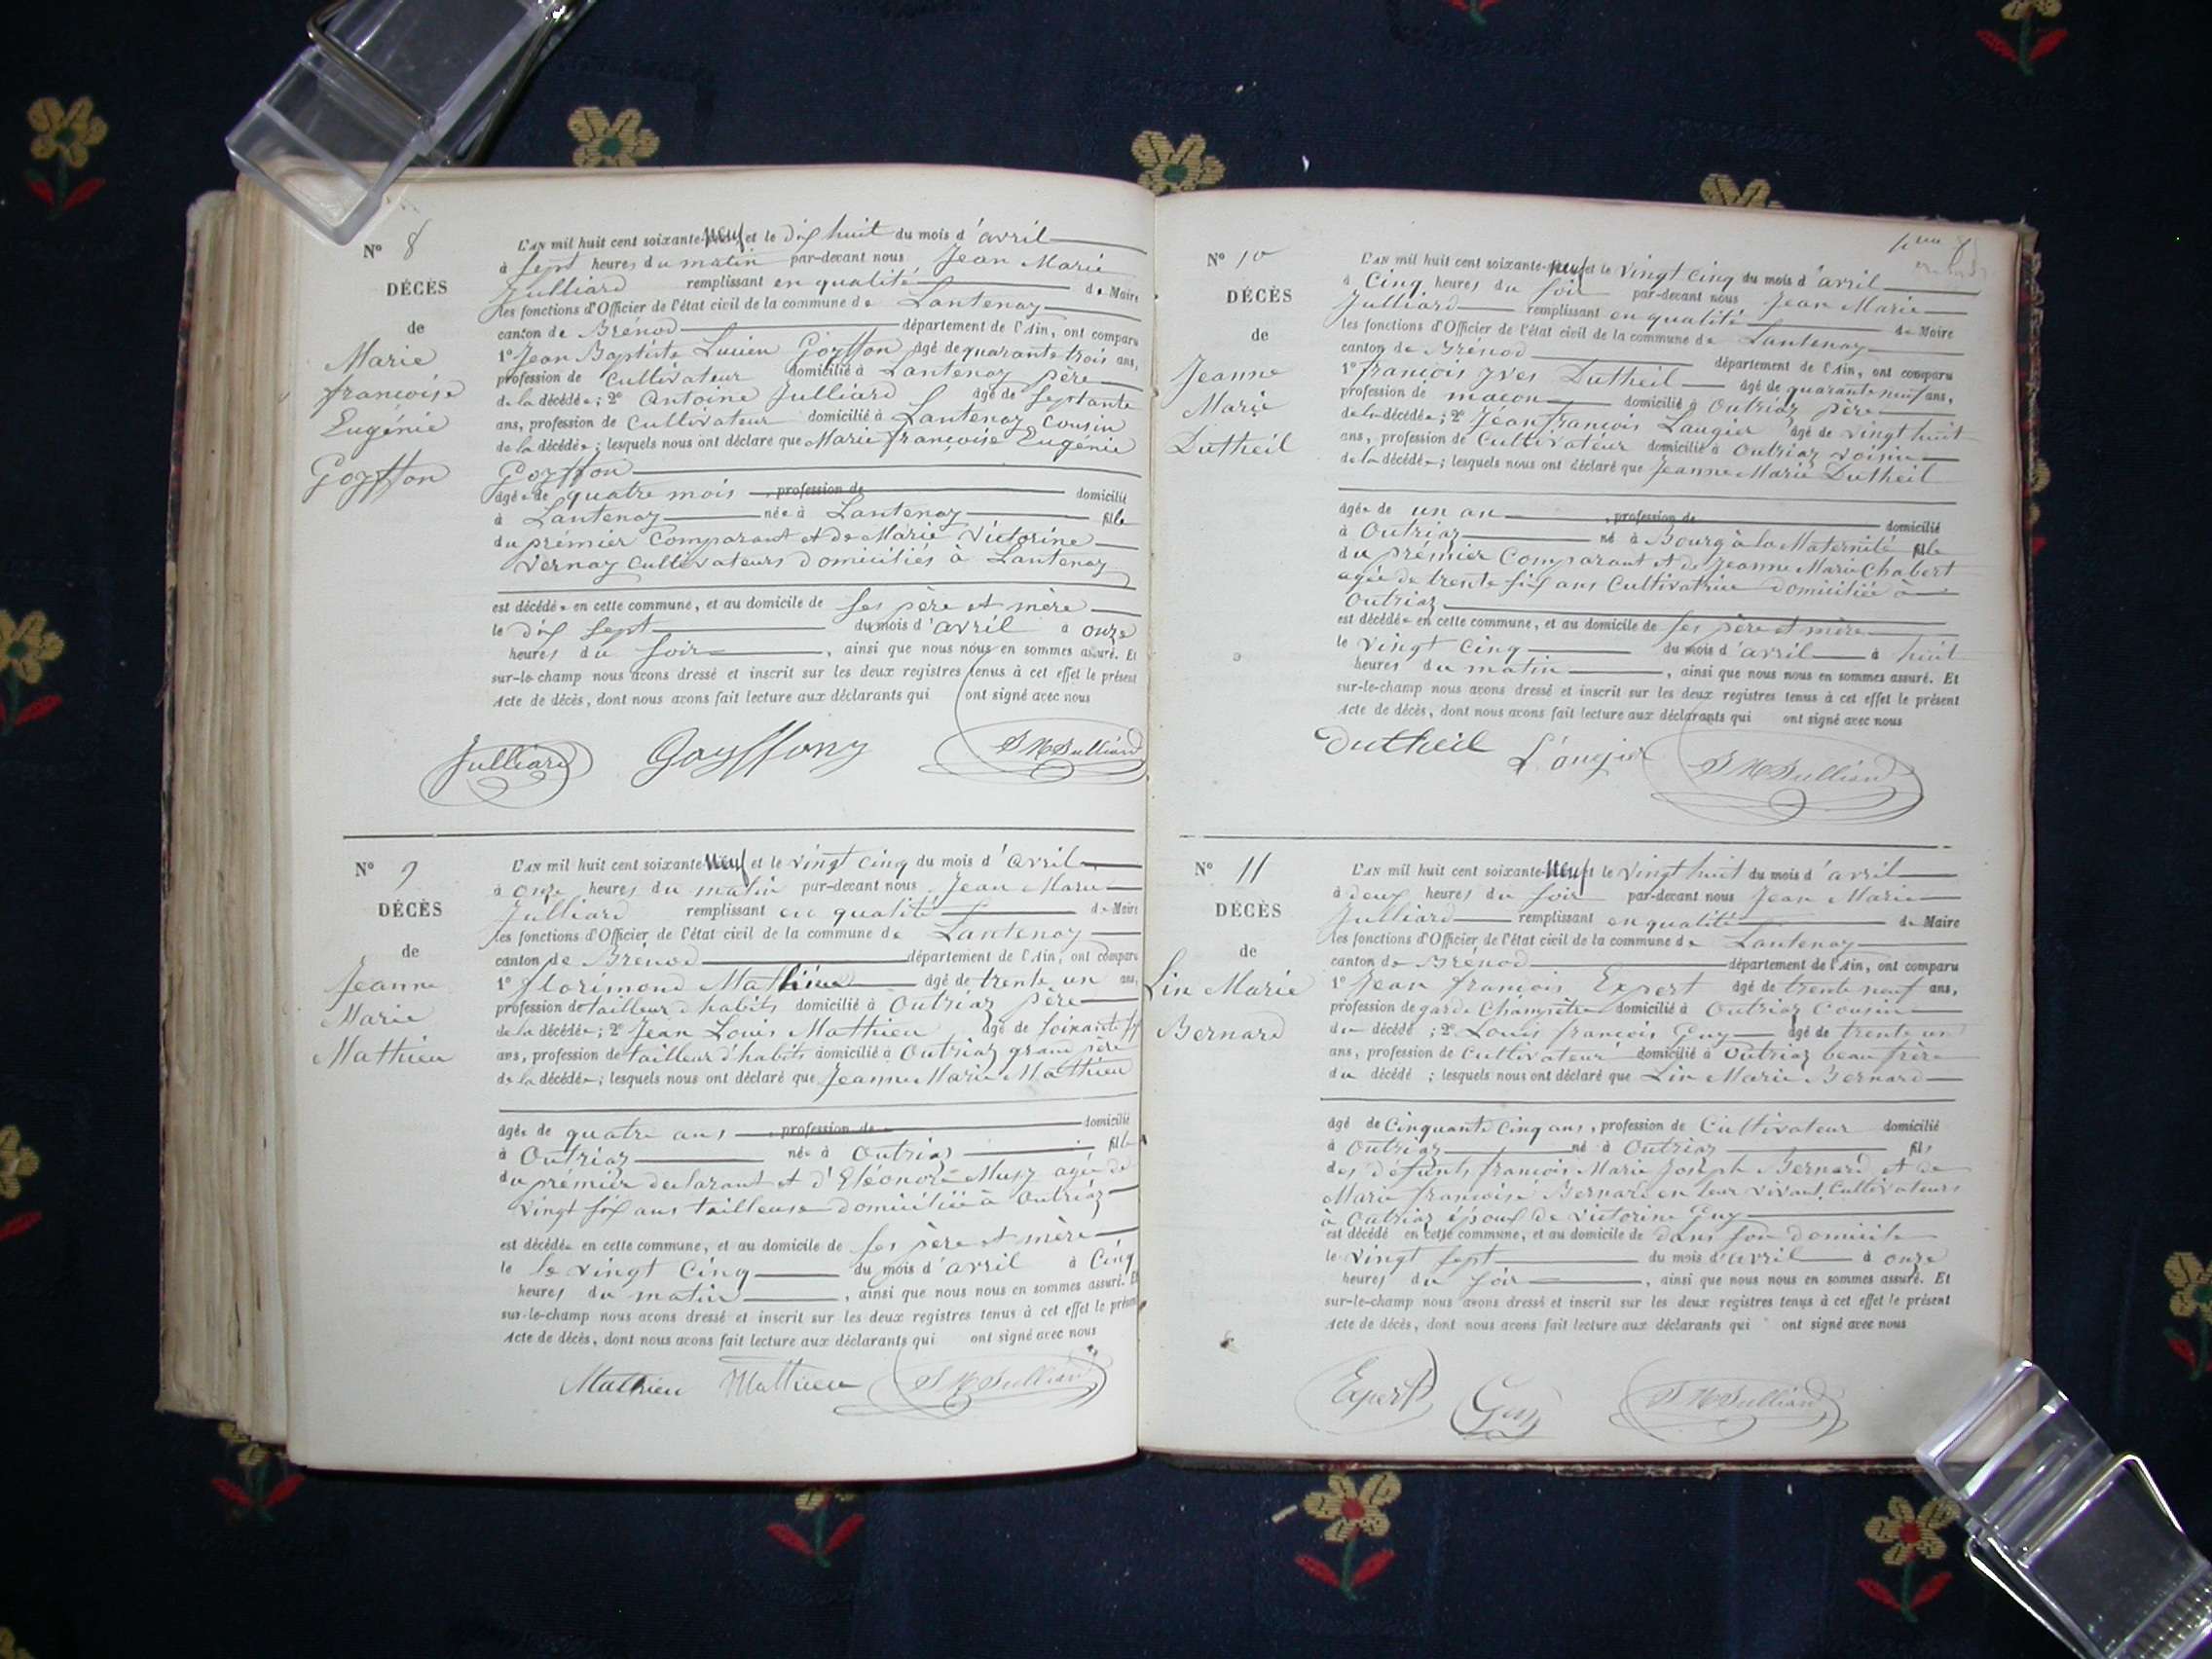 N° 8
DÉCÈS
de
Marie
françoise
Eugénie
Goyffon
L'AN mil huit cent soixante-neuf et le dix huit du mois d'avril
à sept heures du matin par-devant nous Jean Marie
Julliard remplissant en qualité de Maire
les fonctions d'Officier de l'état civil de la commune de Lantenay
canton de Brénod département de l'Ain, ont comparu
1° Jean Baptiste Lucien Goyffon âgé de quarante trois ans,
profession de Cultivateur domicilié à Lantenay père
de la décédée; 2° Antoine Julliard âgé de septante
ans, profession de Cultivateur domicilié à Lantenay Cousin
de la décédée; lesquels nous ont déclaré que Marie françoise Eugénie
Goyffon
âgée de quatre mois profession de domicilié
à Lantenay née à Lantenay fille
du prémier Comparant et de Marie Victorine
Vernay Cultivateurs domiciliés à Lantenay
est décédée en cette commune, et au domicile de ses père et mère
le dix sept du mois d'avril à onze
heures du soir, ainsi que nous nous en sommes assuré. Et
sur-le-champ nous avons dressé et inscrit sur les deux registres tenus à cet effet le présent
Acte de décès, dont nous avons fait lecture aux déclarants qui ont signé avec nous
Julliard Goyffon J M Julliard
N° 9
DÉCÈS
de
Jeanne
Marie
Mathieu
L'AN mil huit cent soixante-neuf et le vingt cinq du mois d'avril
à onze heures du matin par-devant nous Jean Marie
Julliard remplissant en qualité de Maire
les fonctions d'Officier de l'état civil de la commune de Lantenay
canton de Brénod département de l'Ain, ont comparu
1° florimond Mathieu âgé de trente un ans,
profession de tailleur d'habits domicilié à Outriaz père
de la décédée; 2° Jean Louis Mathieu âgé de soixante
ans, profession de tailleur d'habits domicilié à Outriaz grand père
de la décédée; lesquels nous ont déclaré que Jeanne Marie Mathieu
âgée de quatre ans profession de domicilié
à Outriaz née à Outriaz fille
du prémier déclarant et d'Eléonore Musy agée de
vingt six ans tailleuse domiciliée à Outriaz
est décédée en cette commune, et au domicile de ses père et mère
le le vingt Cinq du mois d'avril à Cinq
heures du matin, ainsi que nous nous en sommes assuré. Et
sur-le-champ nous avons dressé et inscrit sur les deux registres tenus à cet effet le présent
Acte de décès, dont nous avons fait lecture aux déclarants qui ont signé avec nous
Mathieu Mathieu J M Julliard
N° 10
DÉCÈS
de
Jeanne
Marie
Dutheil
L'AN mil huit cent soixante-neuf et le vingt cinq du mois d'avril
à Cinq heures du soir par-devant nous Jean Marie
Julliard remplissant en qualité de Maire
les fonctions d'Officier de l'état civil de la commune de Lantenay
canton de Brénod département de l'Ain, ont comparu
1° françois yves Dutheil âgé de quarante neuf ans,
profession de maçon domicilié à Outriaz père
de la décédée; 2° Jean françois Laugier âgé de vingt huit
ans, profession de Cultivateur domicilié à Outriaz voisin
de la décédée; lesquels nous ont déclaré que Jeanne Marie Dutheil
âgée de un an, profession de domicilié
à Outriaz né à Bourg à la Maternité fille
du prémier Comparant et de Jeanne Marie Chabert
agée de trente six ans Cultivatrice domiciliée à
Outriaz
est décédée en cette commune, et au domicile de ses père et mère
le vingt Cinq du mois d'avril à huit
heures du matin, ainsi que nous nous en sommes assuré. Et
sur-le-champ nous avons dressé et inscrit sur les deux registres tenus à cet effet le présent
Acte de décès, dont nous avons fait lecture aux déclarants qui ont signé avec nous
Dutheil Laugier J M Julliard
N° 11
DÉCÈS
de
Lin Marie
Bernard
L'AN mil huit cent soixante-neuf et le vingt huit du mois d'avril
à deux heures du soir par-devant nous Jean Marie
Julliard remplissant en qualité de Maire
les fonctions d'Officier de l'état civil de la commune de Lantenay
canton de Brénod département de l'Ain, ont comparu
1° Jean françois Expert âgé de trente neuf ans,
profession de garde Champêtre domicilié à Outriaz Cousin
du décédé; 2° Louis françois Guy âgé de trente un
ans, profession de Cultivateur domicilié à Outriaz beau frère
du décédé; lesquels nous ont déclaré que Lin Marie Bernard
âgé de Cinquante Cinq ans, profession de Cultivateur domicilié
à Outriaz né à Outriaz fils
des défunts françois Marie Joseph Bernard et de
Marie françoise Bernard en leur vivant Cultivateurs
à Outriaz époux de Victorine Guy
est décédé en cette commune, et au domicile de dans son domicile
le vingt sept du mois d'avril à onze
heures du soir, ainsi que nous nous en sommes assuré. Et
sur-le-champ nous avons dressé et inscrit sur les deux registres tenus à cet effet le présent
Acte de décès, dont nous avons fait lecture aux déclarants qui ont signé avec nous
Expert Guy J M Julliard